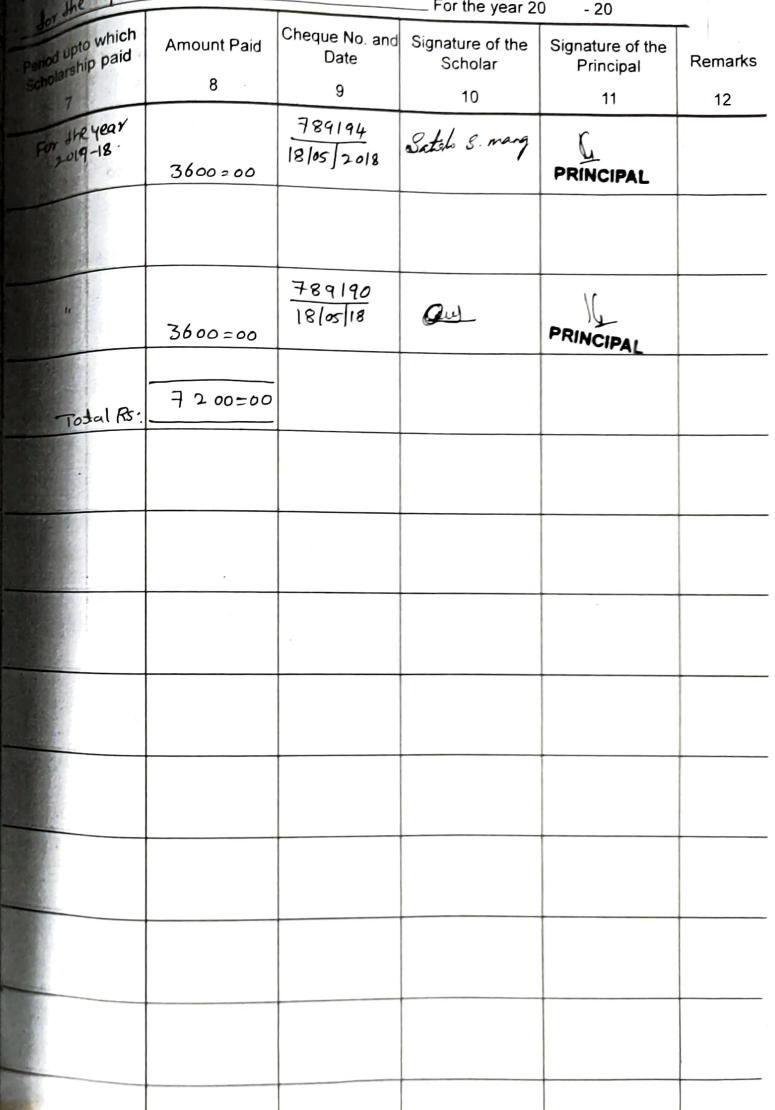 for the
For the year 20 - 20
Period upto which Scholarship paid
7
Amount Paid
8
Cheque No. and Date
9
Signature of the Scholar
10
Signature of the Principal
11
Remarks
12
For the year
2019-18.
3600=00
789194
18/05/2018
S. mang
PRINCIPAL
"
3600=00
789190
18/05/18
PRINCIPAL
Total Rs:
7200=00